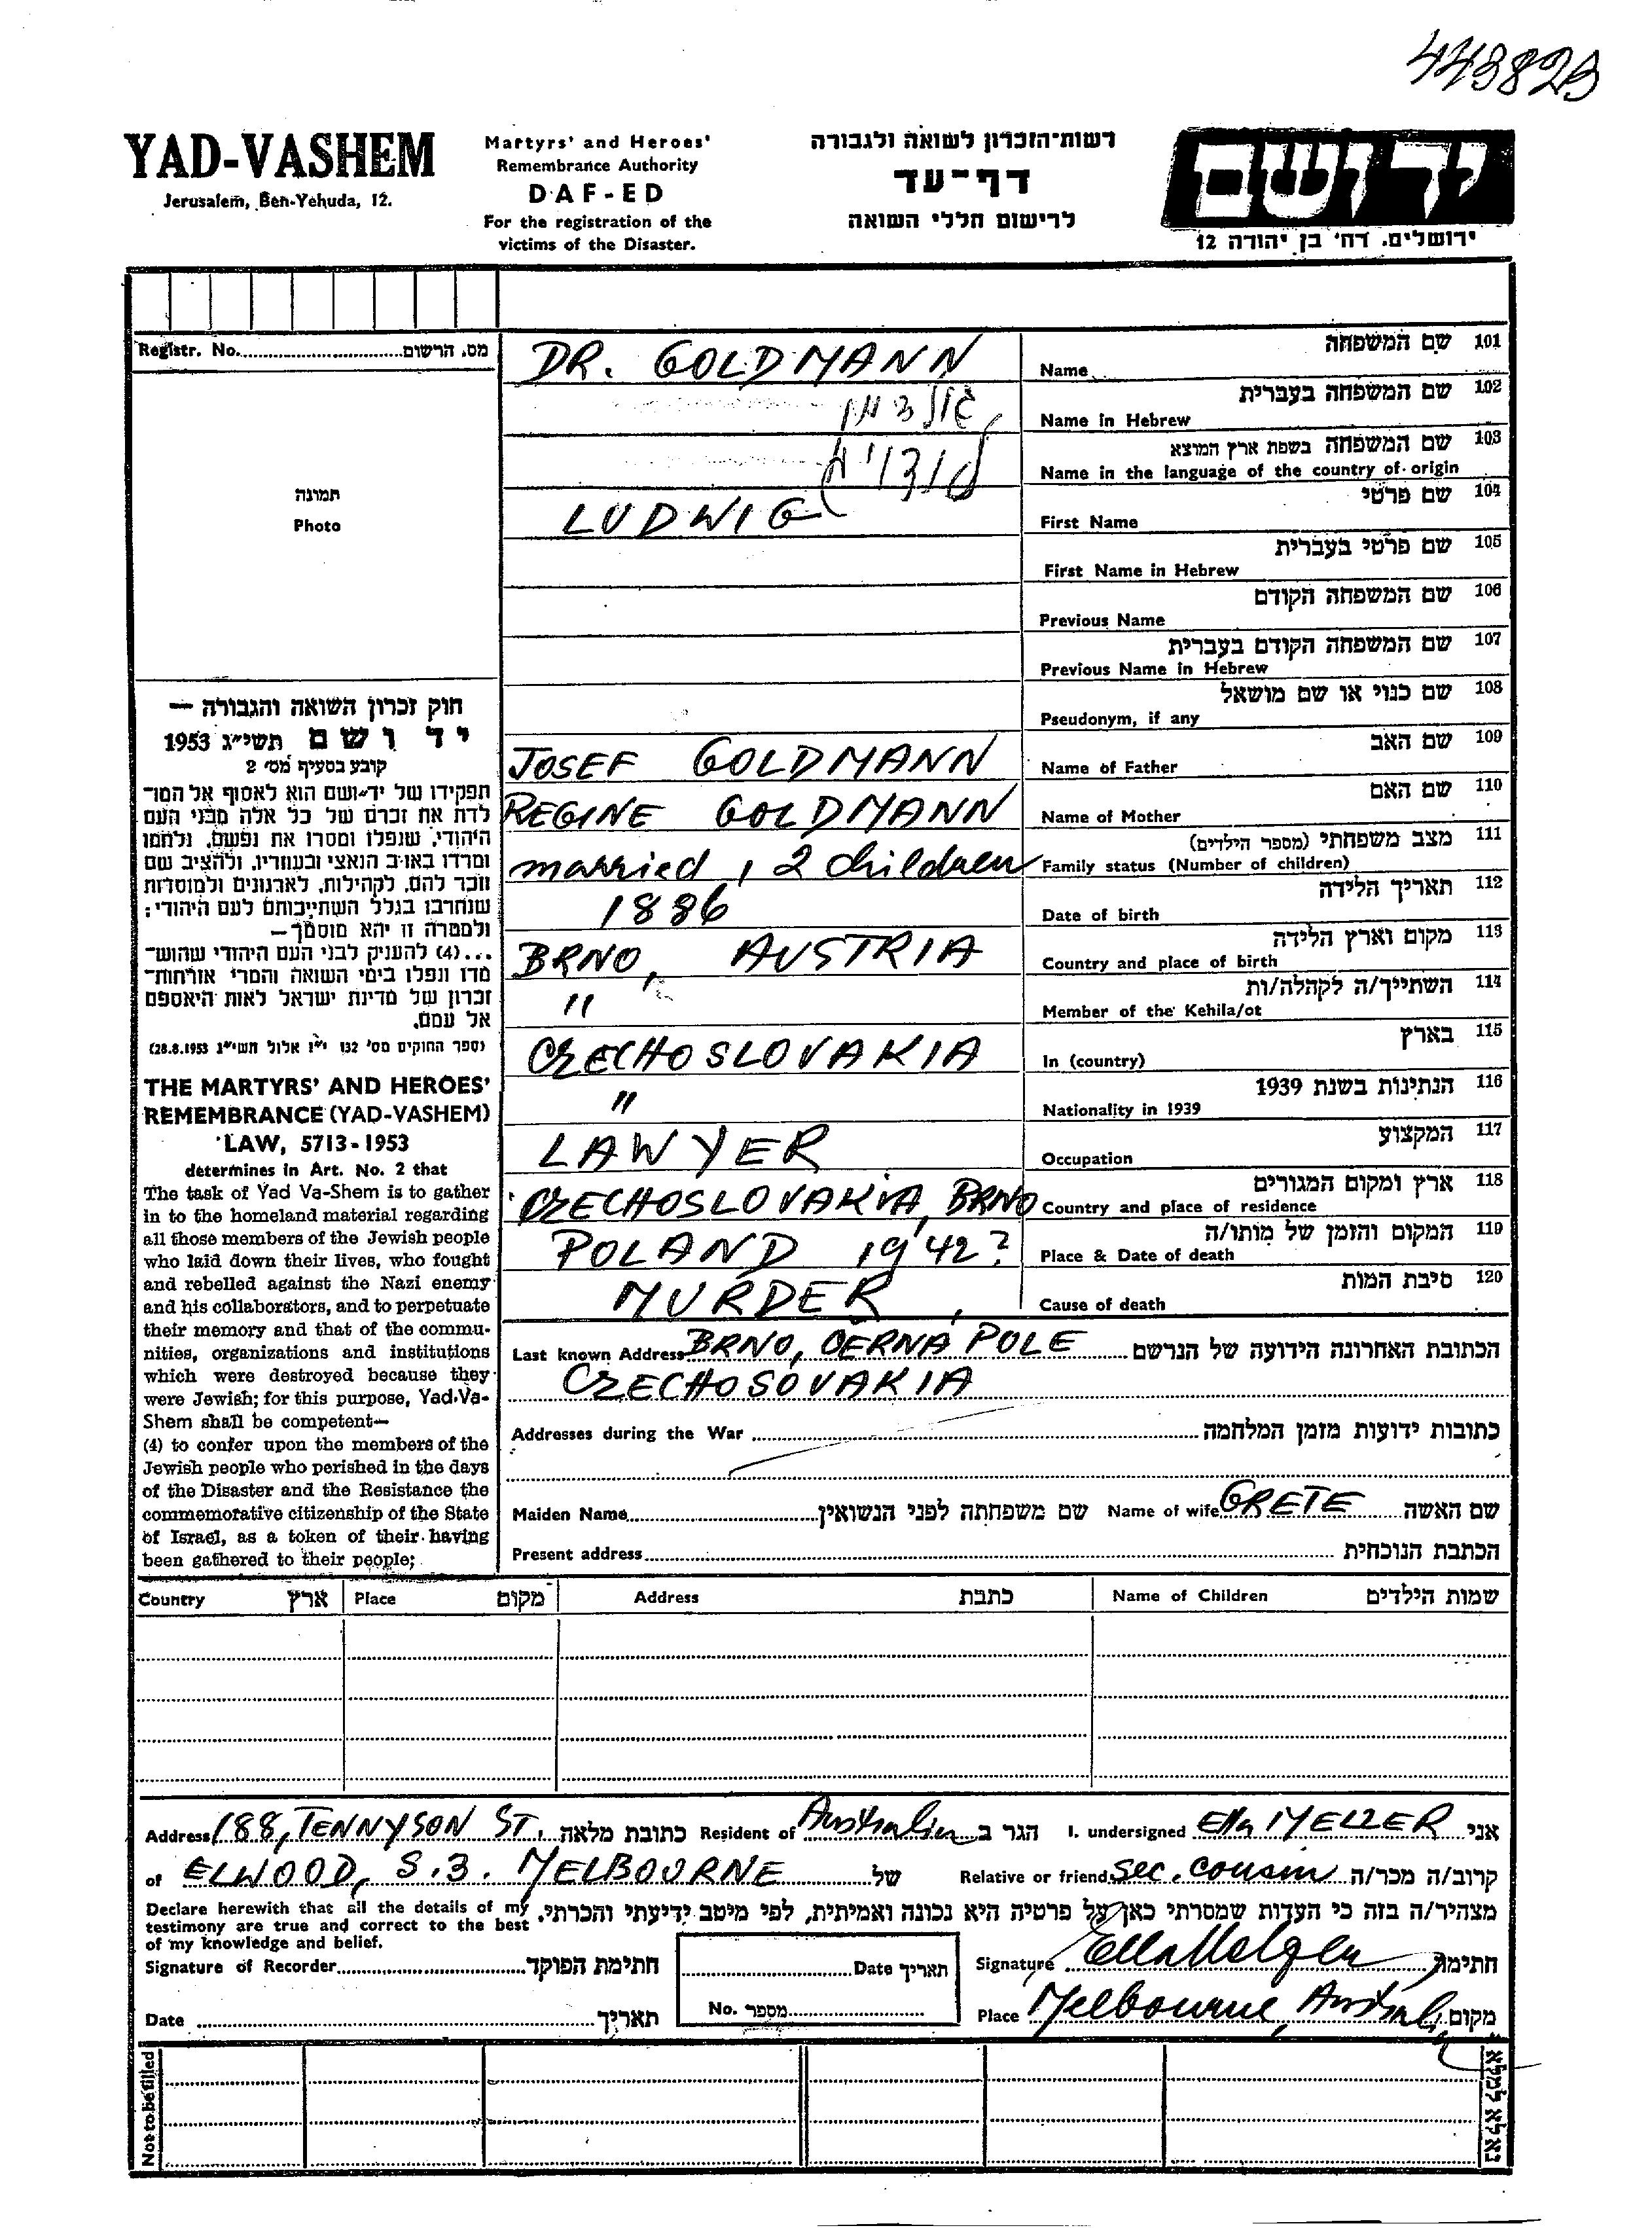 443823
YAD-VASHEM
Jerusalem, Ben-Yehuda, 12.
Martyrs' and Heroes'
Remembrance Authority
DAF-ED
For the registration of the
victims of the Disaster.
רשות-הזכרון לשואה ולגבורה
דף-עד
לרישום חללי השואה
יד ושם
ירושלים, רח' בן יהודה 12
Registr. No. מס. הרשום
תמונה
Photo
חוק זכרון השואה והגבורה —
יד ושם תשי״ג 1953
קובע בסעיף מס' 2
תפקידו של יד-ושם הוא לאסוף אל המו-
לדת את זכרם של כל אלה מבני העם
היהודי, שנפלו ומסרו את נפשם, נלחמו
ומרדו באויב הנאצי ובעוזריו, ולהציב שם
וזכר להם, לקהילות, לארגונים ולמוסדות
שנחרבו בגלל השתייכותם לעם היהודי;
ולמטרה זו יהא מוסמך —
...(4) להעניק לבני העם היהודי שהוש-
מדו ונפלו בימי השואה והמרי אזרחות-
זכרון של מדינת ישראל לאות היאספם
אל עמם.
(ספר החוקים מס' 132 י״ז אלול תשי״ג 28.8.1953)
THE MARTYRS' AND HEROES'
REMEMBRANCE (YAD-VASHEM)
LAW, 5713-1953
determines in Art. No. 2 that
The task of Yad Va-Shem is to gather
in to the homeland material regarding
all those members of the Jewish people
who laid down their lives, who fought
and rebelled against the Nazi enemy
and his collaborators, and to perpetuate
their memory and that of the commu-
nities, organizations and institutions
which were destroyed because they
were Jewish; for this purpose, Yad-Va-
Shem shall be competent—
(4) to confer upon the members of the
Jewish people who perished in the days
of the Disaster and the Resistance the
commemorative citizenship of the State
of Israel, as a token of their having
been gathered to their people;
DR. GOLDMANN Name שם המשפחה 101
גולדמן Name in Hebrew שם המשפחה בעברית 102
לודויג Name in the language of the country of origin שם המשפחה בשפת ארץ המוצא 103
LUDWIG First Name שם פרטי 104
First Name in Hebrew שם פרטי בעברית 105
Previous Name שם המשפחה הקודם 106
Previous Name in Hebrew שם המשפחה הקודם בעברית 107
Pseudonym, if any שם כנוי או שם מושאל 108
JOSEF GOLDMANN Name of Father שם האב 109
REGINE GOLDMANN Name of Mother שם האם 110
married, 2 children Family status (Number of children) מצב משפחתי (מספר הילדים) 111
1886 Date of birth תאריך הלידה 112
BRNO, AUSTRIA Country and place of birth מקום וארץ הלידה 113
" Member of the Kehila/ot השתייך/ה לקהלה/ות 114
CZECHOSLOVAKIA In (country) בארץ 115
" Nationality in 1939 הנתינות בשנת 1939 116
LAWYER Occupation המקצוע 117
CZECHOSLOVAKIA, BRNO Country and place of residence ארץ ומקום המגורים 118
POLAND 1942? Place & Date of death המקום והזמן של מותו/ה 119
MURDER Cause of death סיבת המות 120
Last known Address BRNO, CERNA POLE הכתובת האחרונה הידועה של הנרשם
CZECHOSOVAKIA
Addresses during the War כתובות ידועות מזמן המלחמה
Maiden Name שם משפחתה לפני הנשואין Name of wife GRETE שם האשה
Present address הכתבת הנוכחית
Country ארץ Place מקום Address כתבת Name of Children שמות הילדים
Address 188, TENNYSON ST. כתובת מלאה Resident of Australia הגר ב I, undersigned Ella MELZER אני
of ELWOOD, S.3. MELBOURNE של Relative or friend Sec. cousin קרוב/ה מכר/ה
Declare herewith that all the details of my
testimony are true and correct to the best
of my knowledge and belief.
מצהיר/ה בזה כי העדות שמסרתי כאן על פרטיה היא נכונה ואמיתית, לפי מיטב ידיעתי והכרתי.
Signature of Recorder חתימת הפוקד Date תאריך Signature Ella Melzer חתימה
Date תאריך No. מספר Place Melbourne, Austral. מקום
Not to be filled נא לא למלא